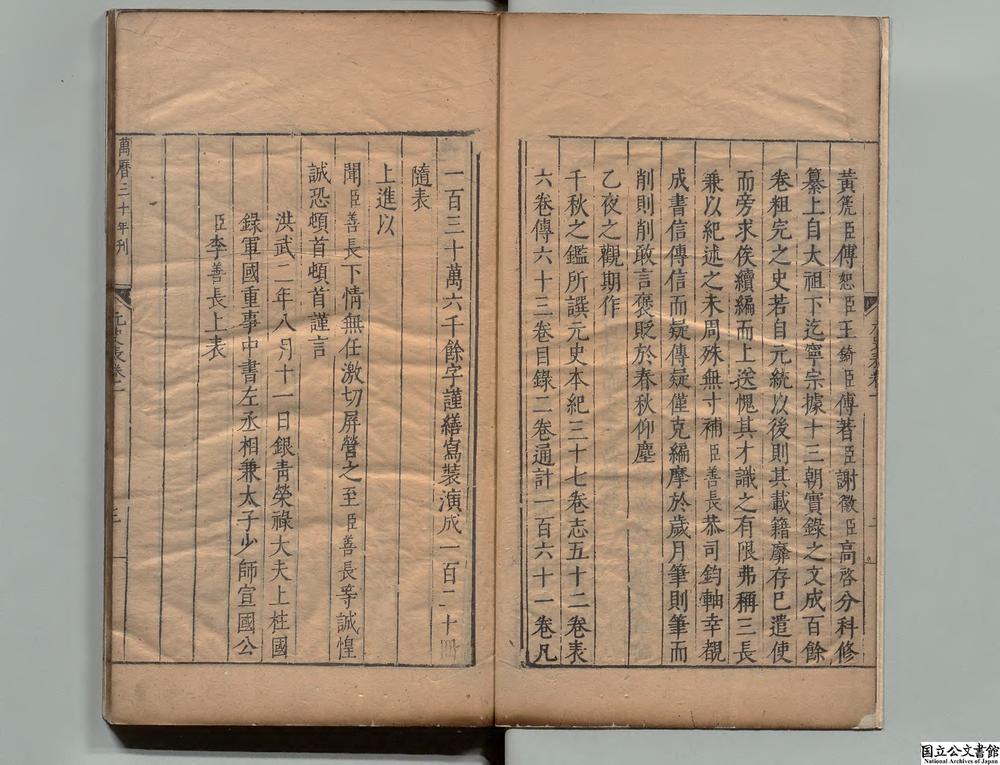 黃篪臣傅恕臣王錡臣傅著臣謝徽臣高啓分科修
纂上自太祖下迄寧宗據十三朝實錄之文成百餘
卷粗完之史若自元統以後則其載籍靡存已遣使
而旁求俟續編而上送愧其才識之有限弗稱三長
兼以紀述之未周殊無寸補臣善長恭司鈞軸幸覩
成書信傳信而疑傳疑僅克編摩於歲月筆則筆而
削則削敢言褒貶於春秋仰塵
乙夜之觀期作
千秋之鑑所譔元史本紀三十七卷志五十三卷表
六卷傳六十三卷目錄二卷通計一百六十一卷凡
一百三十萬六千餘字謹繕寫裝演成一百二十冊
隨表
上進以
聞臣善長下情無任激切屏營之至臣善長等誠惶
誠恐頓首頓首謹言
洪武二年八月十一日銀青榮祿大夫上柱國
錄軍國重事中書左丞相兼太子少師宣國公
臣李善長上表
萬曆三十年刊
元史表卷一
三
国立公文書館
National Archives of Japan